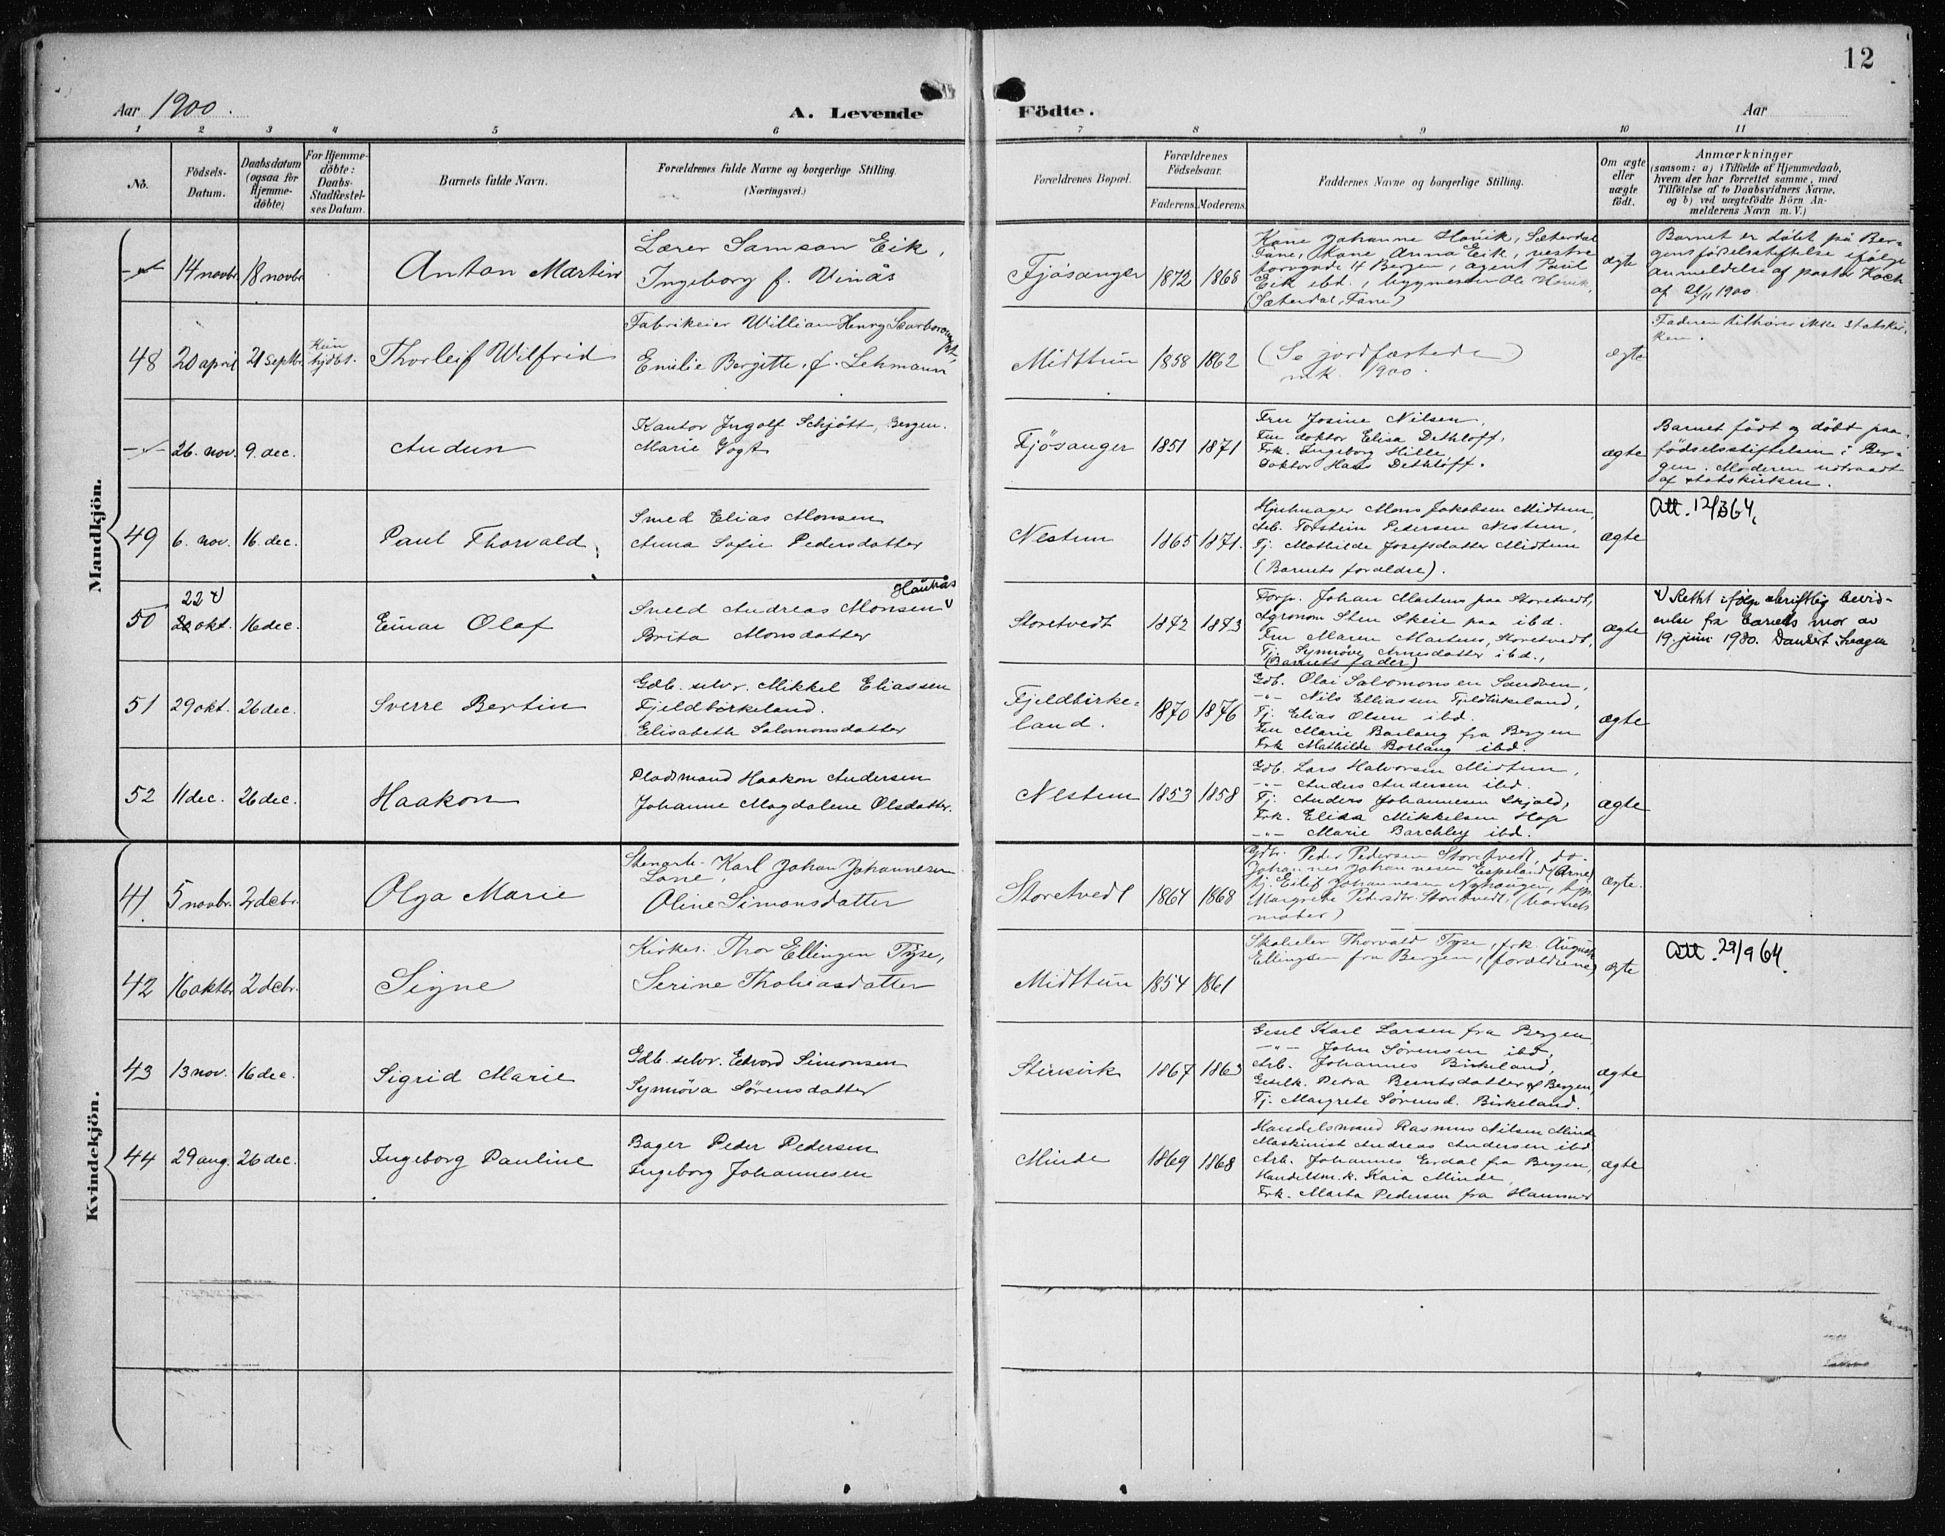 12
Aar 1900.
A. Levende
Födte.
Aar
1 2 3 4 5 6 7 8 9 10 11
No.
Födsels-
Datum.
Daabsdatum
(ogsaa for
Hjemme-
döbte)
For Hjemme-
döbte:
Daabs-
Stadfæstel-
ses Datum.
Barnets fulde Navn.
Forældrenes fulde Navne og borgerlige Stilling.
(Næringsvei.)
Forældrenes Bopæl.
Forældrenes
Födselsaar.
Faderens. Moderens.
Faddernes Navne og borgerlige Stilling.
Om ægte
eller
uægte
födt.
Anmærkninger
(saasom: a) i Tilfælde af Hjemmedaab,
hvem der har forrettet samme, med
Tilföielse af to Daabsvidners Navne,
og b) ved uægtefödte Börn An-
melderens Navn m. V.)
Mandkjön.
14 novbr 18 novbr
Anton Martin
Lærer Samson Eik,
Ingeborg f. Vinås
Fjösanger
1872 1868
Kone Johanne Hövik, Sæterdal
Fane, Kone Anna Eik, vestre
torvgade 14 Bergen, agent Poul
Eik ibd., bygmester Ole Hövik,
(Sæterdal, Fane)
ægte
Barnet er döbt på Ber-
gens födselsstiftelse ifölge
anmeldelse af pastor Koch
af 21/11 1900.
48
20 april 21 septbr.
Kun
Thorleif Wilfrid
Fabrikeier William Henry Scarborough
Emilie Bergitte, f. Lehmann
Midttun
1858 1862
(Se jordfæstede
mk. 1900.)
ægte
Faderen tilhører ikke statskir-
ken.
26. nov. 9. dec.
Audun
Kantor Ingolf Schjött, Bergen.
Marie Vogt
Fjösanger
1851 1871
Fru Josine Nilsen,
Fru doktor Elisa Dethloff,
Frk. Ingeborg Hille,
Doktor Hans Dethloff.
ægte
Barnet född og döbt paa
födselsstiftelsen i Ber-
gen. Moderen udtraadt
af statskirken.
49
6. nov. 16. dec.
Paul Thorvald
Smed Elias Monsen
Anna Sofie Pedersdatter
Nestun
1865 1871.
Hjulmager Mons Jakobsen Midtun,
Arb. Torstein Pedersen Nestun,
Tj. Mathilde Josefsdatter Midtun
(Barnets forældre).
ægte
Att. 12/3 64.
50
22 V
20 okt. 16 dec.
Einar Olaf
Haukås
Smed Andreas Monsen V
Brita Monsdatter
Storetvedt
1872 1873
Forp. Johan Martens paa Storetvedt,
Agronom Sten Skeie paa ibd.
Fru Maren Martens, Storetvedt,
Tj. Synnöve Arnesdatter ibd.,
(Barnets fader)
ægte
V Rettet ifølge skriftlig bevid-
nelse fra barnets mor av
19. juni 1930.
51
29 okt. 26 dec.
Sverre Bertin
Gdb. selv. Mikkel Eliassen
Fjeldbirkeland.
Elisabeth Salomonsdatter
Fjeldbirke-
land.
1870 1876
Gdb. Olai Salomonsen Sandven,
-"- Nils Elliassen Fjeldbirkeland,
Tj. Elias Olsen ibd.
Fru Marie Borlaug fra Bergen
Frk Mathilde Borlaug ibd.
ægte
52
11 dec. 26 dec.
Haakon
Pladsmand Haakon Andersen
Johanne Magdalene Olsdatter.
Nestun
1853 1858
Gdb. Lars Halvorsen Midtun,
-"- Anders Andersen ibd.
Tj. Anders Johannesen Skjold,
Frk. Elisa Mikkelsen Hop
-"- Marie Barchley ibd.
ægte
Kvindekjön.
41.
5 novbr. 2 decbr.
Olga Marie
Stenarb. Karl Johan Johannesen
Lone,
Oline Simonsdatter
Storetvedt
1864 1868
Gdbr. Peder Pedersen Storetvedt, do-
Johannes Johannesen Espeland (Arne)
tj. Eilif Johannesen Nyhaugen,
Margrete Pedersdtr. Storetvedt, (barnets
moder)
ægte.
42
16 oktbr 2 decbr.
Signe
Kirkes. Thor Ellingen Tyse,
Serine Thobiasdatter
Midttun
1854 1861
Skoleelev Thorvald Tyse, frk. Augusta
Ellingsen fra Bergen, (forældrene)
ægte
Att. 29/9 64.
43
13 nov. 16 dec.
Sigrid Marie
Gdb. selv. Edvard Simonsen
Synnöva Sörensdatter
Stensvik
1867 1863
Gesel Karl Larsen fra Bergen
-"- John Sörensen ibd,
Arb. Johannes Birkeland,
Geselk. Petra Berntsdatter af Bergen,
Tj. Margrete Sörensd. Birkeland.
ægte
44
29 aug. 26 dec.
Ingeborg Pauline
Bager Peder Pedersen
Ingeborg Johannesen
Minde
1869 1868
Handelsmand Rasmus Nilsen Minde
Maskinist Andreas Andersen ibd
Arb. Johannes Erdal fra Bergen,
Handelsm. k. Kaia Minde,
Frk. Marta Pedersen fra Hammer
ægte